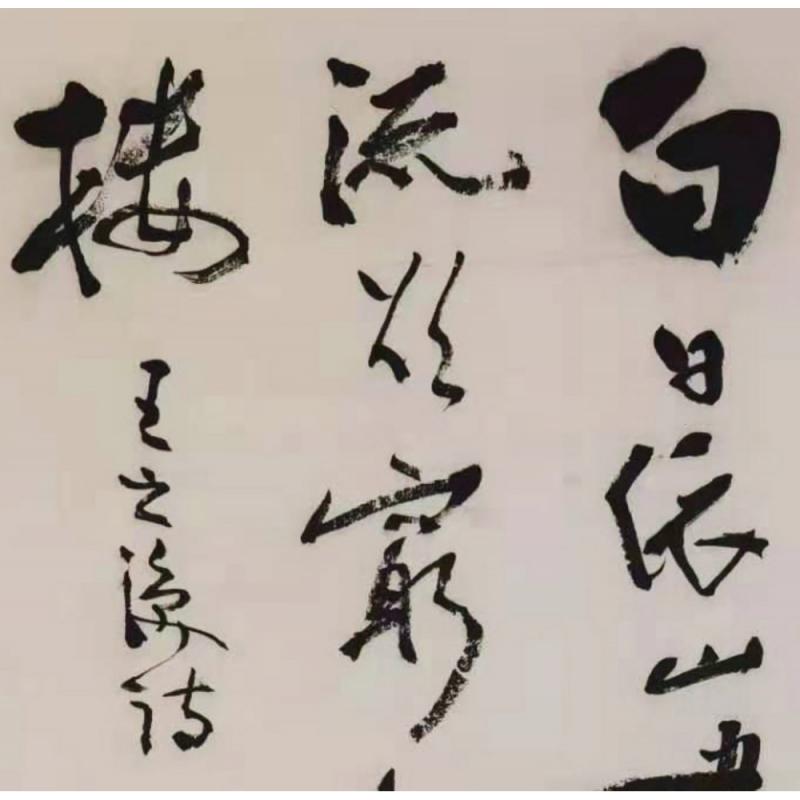 白日依山
流欲窮
樓
王之渙詩